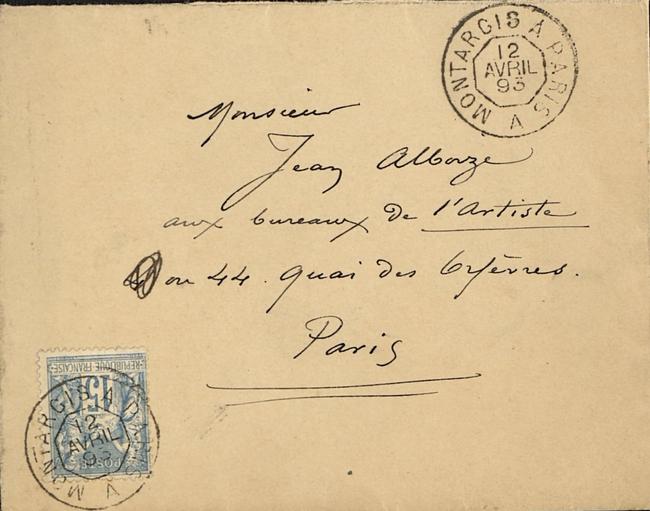 MONTARGIS A PARIS A
12
AVRIL
93
Monsieur
Jean Alboize
aux bureaux de l'Artiste
ou 44 . quai des Orfèvres.
Paris
REPUBLIQUE FRANÇAISE
15
POSTES
MONTARGIS A PARIS A
12
AVRIL
93